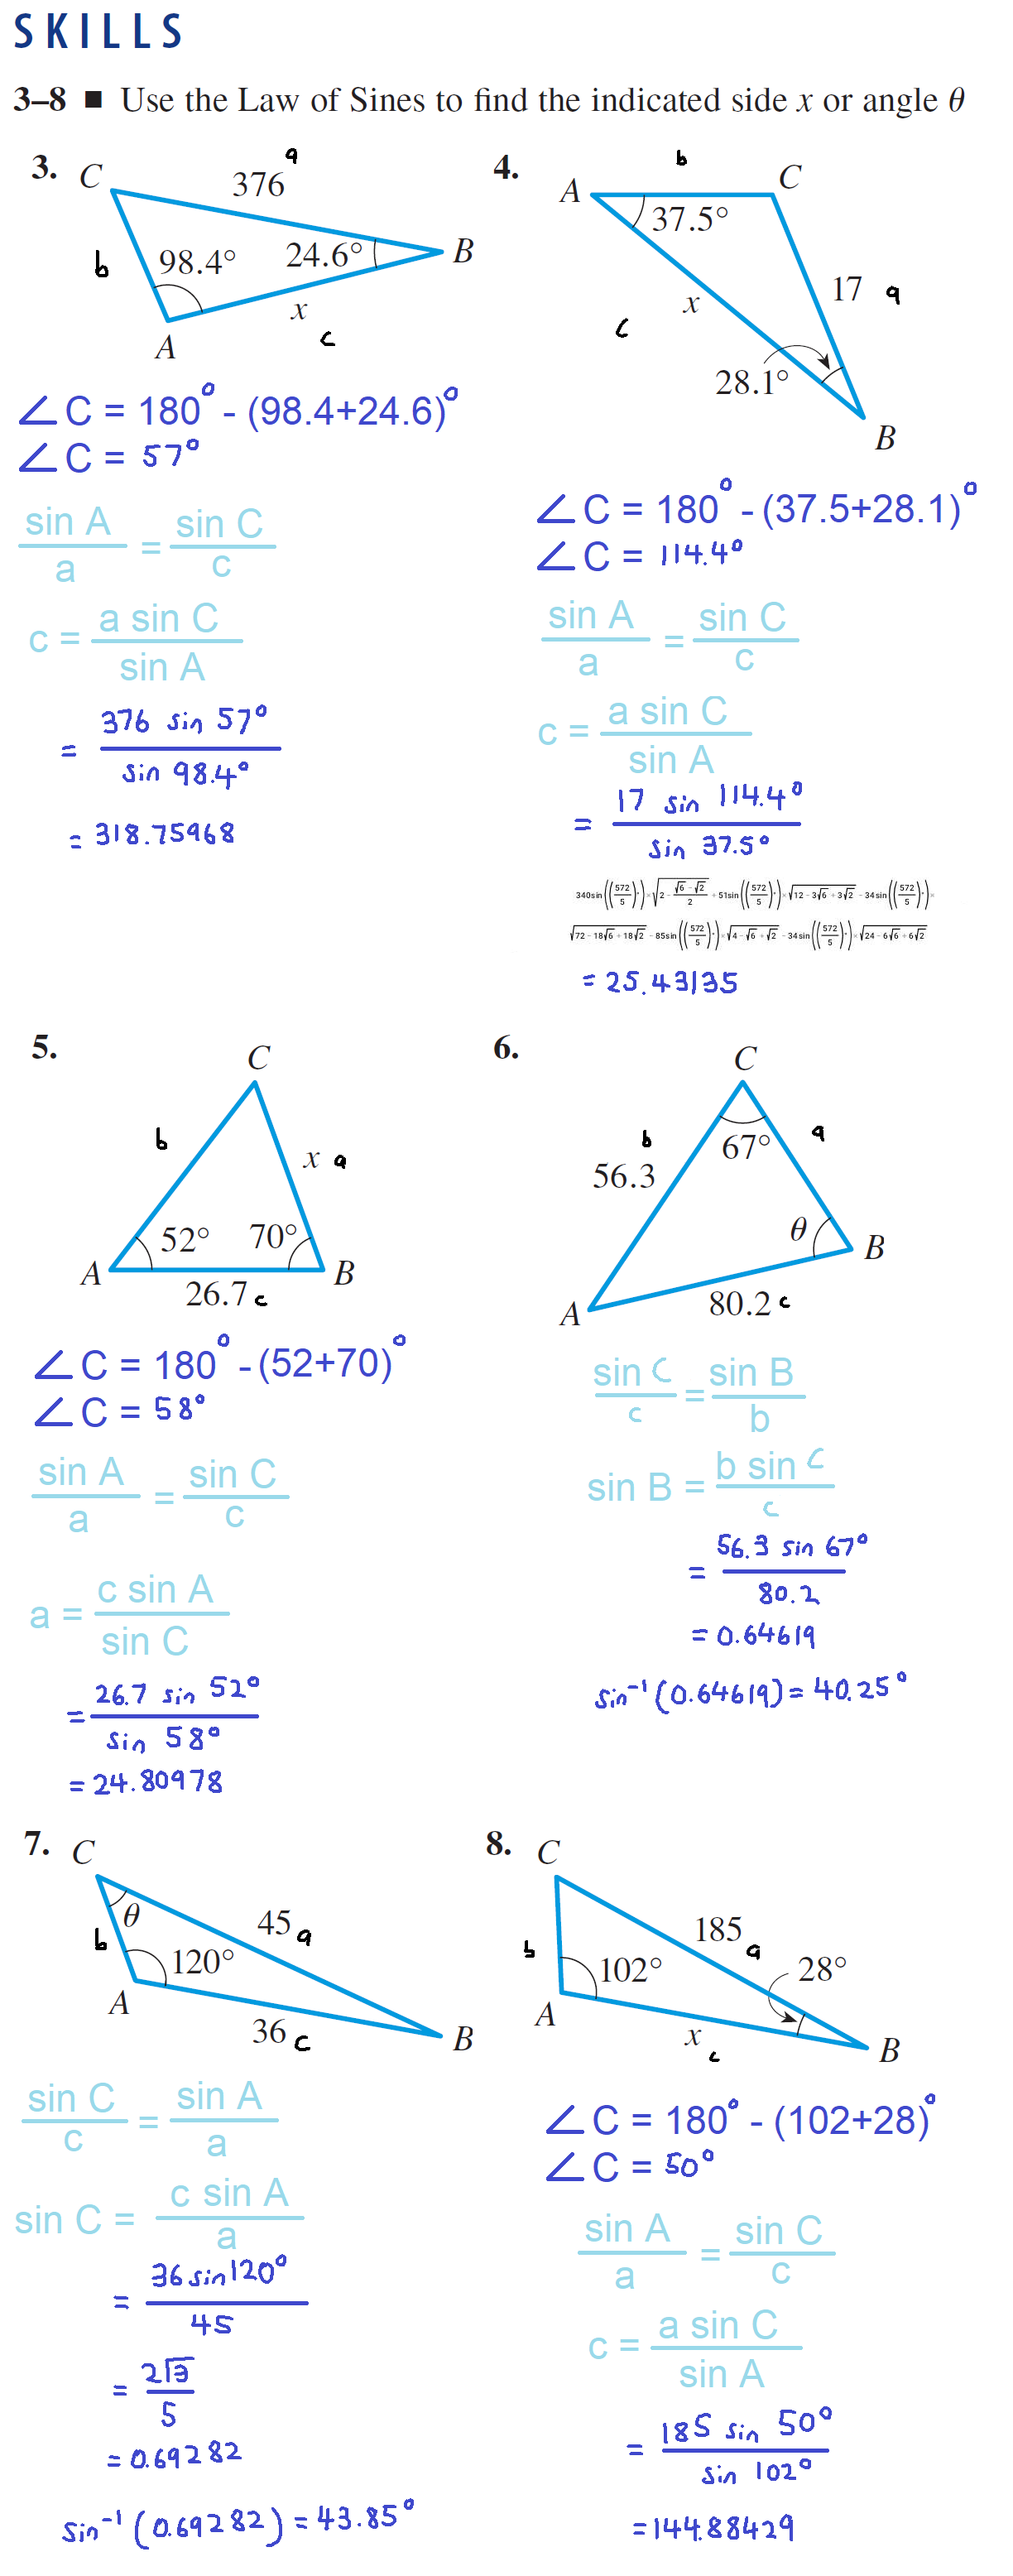 SKILLS
3–8 ■ Use the Law of Sines to find the indicated side x or angle θ
3.
C
a
376
b
98.4°
24.6°
B
x
c
A
∠C = 180° - (98.4+24.6)°
∠C = 57°
sin A / a = sin C / c
c = a sin C / sin A
= 376 sin 57° / sin 98.4°
= 318.75968
4.
b
A
C
37.5°
17 a
x
c
28.1°
B
∠C = 180° - (37.5+28.1)°
∠C = 114.4°
sin A / a = sin C / c
c = a sin C / sin A
= 17 sin 114.4° / sin 37.5°
340sin((572/5)°)×√(2 - (√6 - √2)/2) + 51sin((572/5)°)×√(12 - 3√6 + 3√2) - 34sin((572/5)°)×
√(72 - 18√6 + 18√2) - 85sin((572/5)°)×√(4 - √6 + √2) - 34sin((572/5)°)×√(24 - 6√6 + 6√2)
= 25.43135
5.
C
b
x a
52°
70°
A
B
26.7 c
∠C = 180° - (52+70)°
∠C = 58°
sin A / a = sin C / c
a = c sin A / sin C
= 26.7 sin 52° / sin 58°
= 24.80978
6.
C
b
a
67°
56.3
θ
B
80.2 c
A
sin C / c = sin B / b
sin B = b sin C / c
= 56.3 sin 67° / 80.2
= 0.64619
sin⁻¹(0.64619) = 40.25°
7.
C
θ
45 a
b
120°
A
36 c
B
sin C / c = sin A / a
sin C = c sin A / a
= 36 sin 120° / 45
= 2√3 / 5
= 0.69282
sin⁻¹(0.69282) = 43.85°
8.
C
185 a
b
102°
28°
A
x
c
B
∠C = 180° - (102+28)°
∠C = 50°
sin A / a = sin C / c
c = a sin C / sin A
= 185 sin 50° / sin 102°
= 144.88429